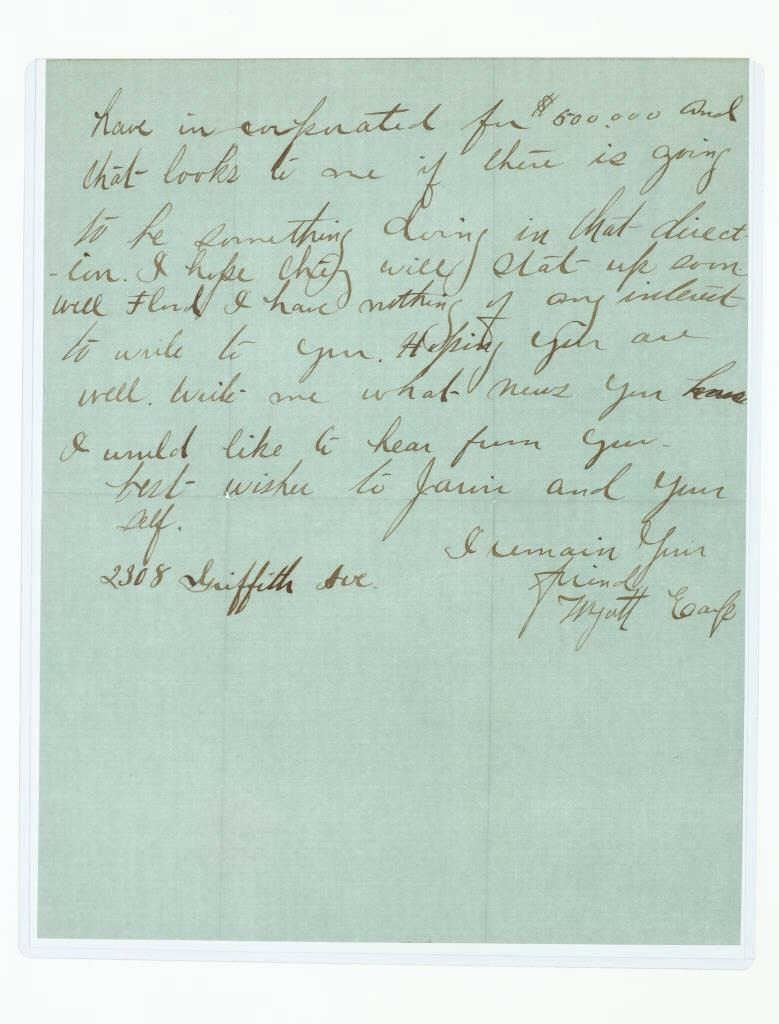 have in corporated for $500.000 and
that looks to me if there is going
to be something doing in that direct-
-ion. I hope they will stat up soon
well Flood, I have nothing of any interest
to write to you. Hoping you are
well. Write me what news you have
I would like to hear from you.
best wishes to and your
self.
I remain Your
2308 Griffith Ave.
friend
Wyatt Earp